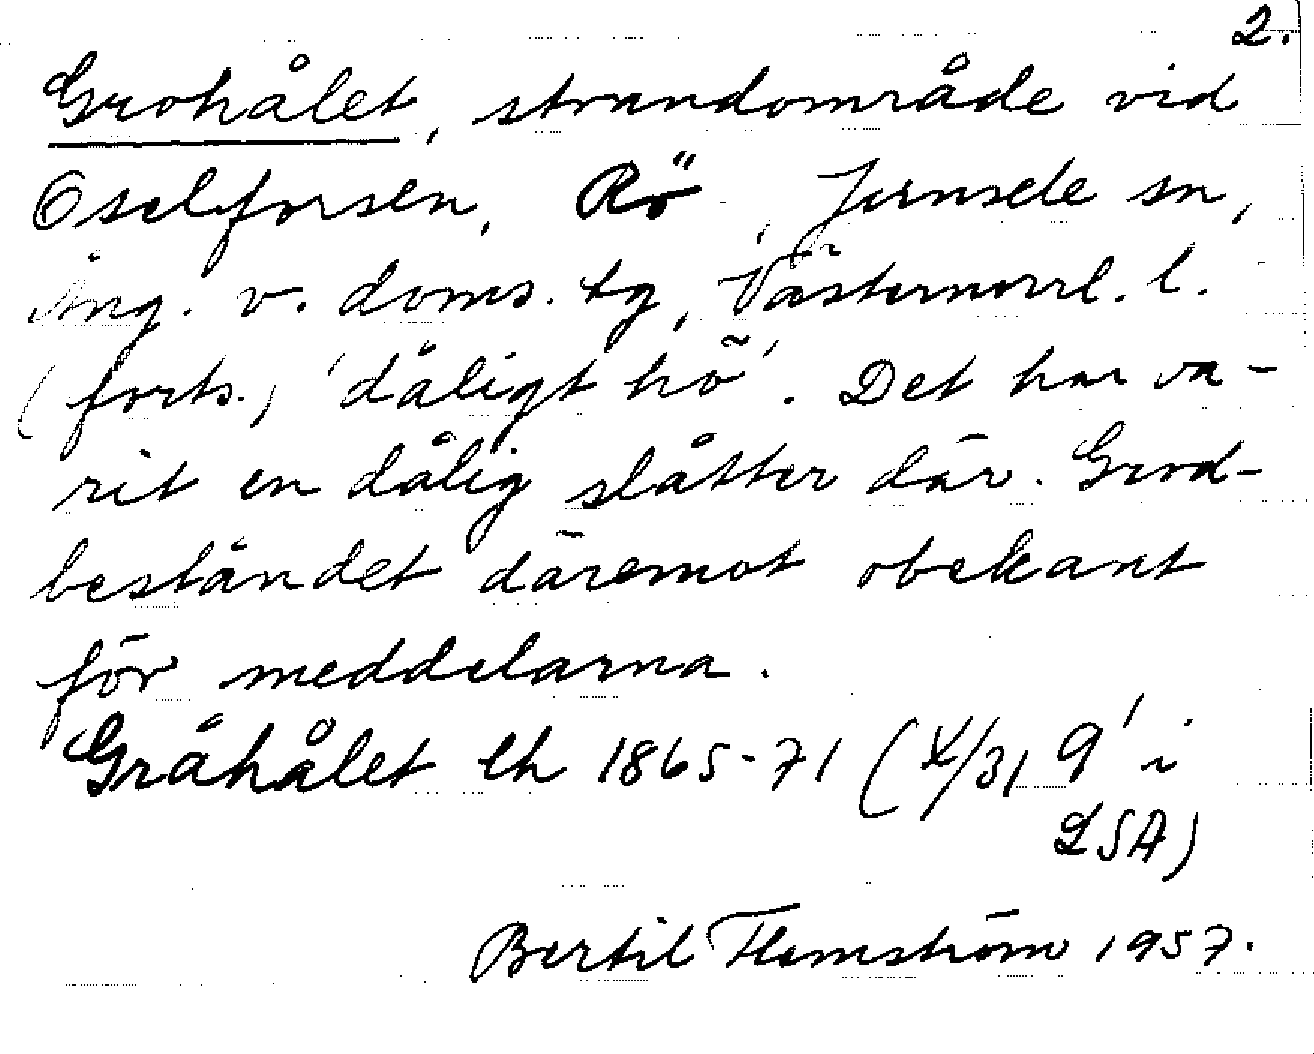 2.
Grohålet, strandområde vid
Oselforsen, Rö, Junsele sn,
Ång. v. doms. tg, Västernorrl. l.
(forts.) 'dåligt hö'. Det har va-
rit en dålig slåtter där. Grod-
beståndet däremot obekant
för meddelarna.
Gråhålet lh 1865-71 ( 9' i
LSA)
Bertil Flemström 1957.